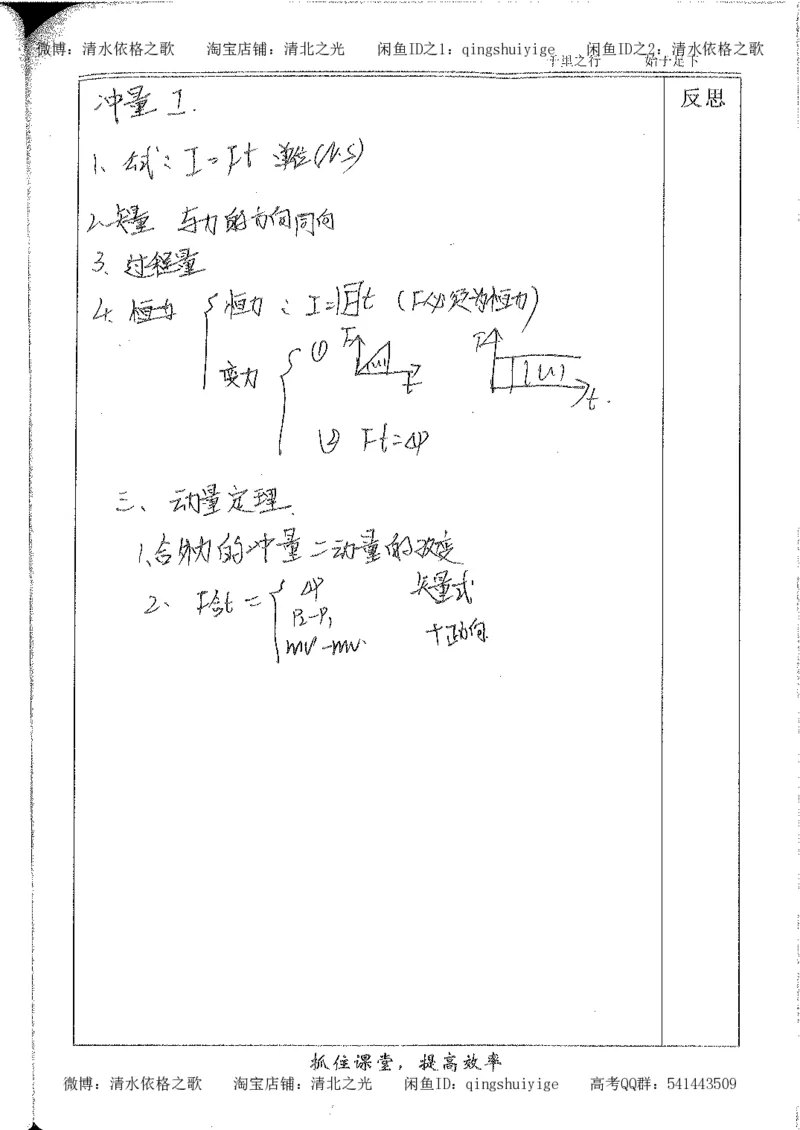 微博：清水依格之歌 淘宝店铺：清北之光 闲鱼ID之1：qingshuiyige 闲鱼ID之2：清水依格之歌
千里之行 始于足下
冲量 I.
反思
1、公式：I=Ft 单位(N·S)
2、矢量 与力的方向同向
3、过程量
4、恒力 { 恒力：I=|F|t (F必须为恒力)
变力 { ① F t F t.
② Ft=ΔP
三、动量定理
1、合外力的冲量=动量的改变
2、F合t = { ΔP 矢量式
P₂-P₁
mv'-mv. 十正方向
抓住课堂，提高效率
微博：清水依格之歌 淘宝店铺：清北之光 闲鱼ID：qingshuiyige 高考QQ群：541443509